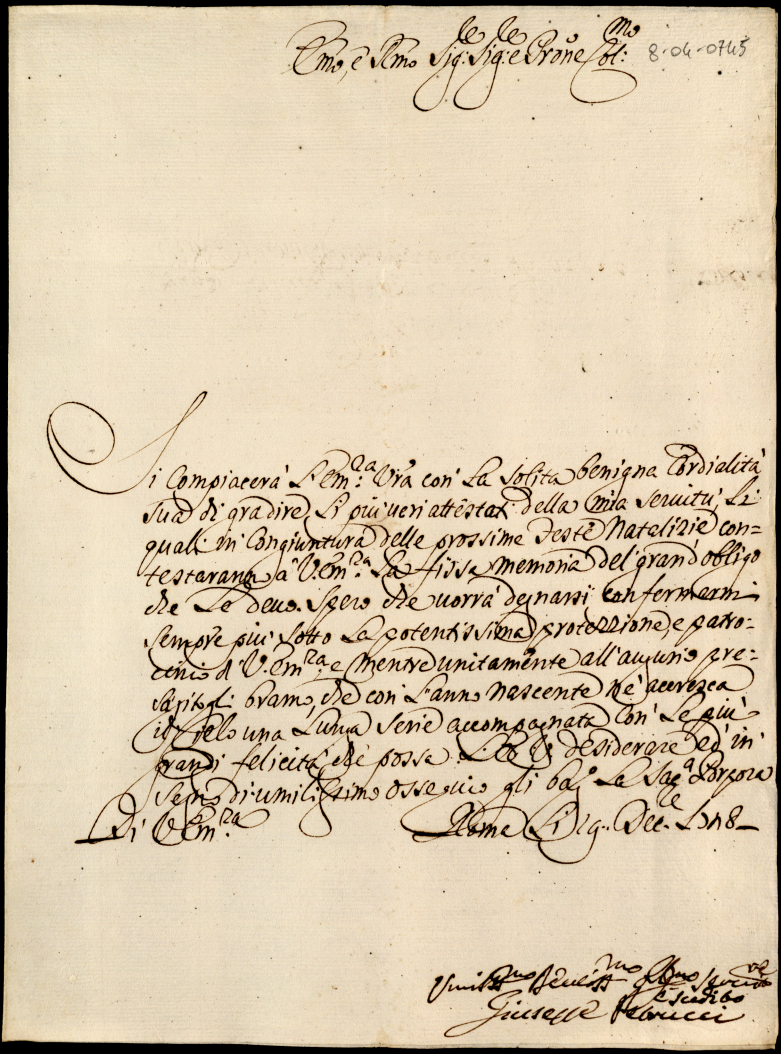 Emo, e Rmo Sig:re Sig:re e Prone Col:mo 8-04-0745
Si Compiacerà L'Em:za Vra con La solita benigna Cordialità
sua di gradire Li più veri attestati della mia servitù, Li
quali in Congiuntura delle prossime Feste Natalizie con=
testaranno a V.Em:za La fissa memoria del grand'obligo
che Le devo. Spero che vorrà degnarsi confermarmi
sempre più sotto La potentissima protezzione, e patro=
cinio di V.Em:za, e mentre unitamente all'augurio pre=
gli bramo, che con L'anno nascente Ne accresca
il Cielo una Lunga serie accompagnata con Le più
grandi felicità che possa desiderare ed in
segno di umilissimo ossequio gli bacio La Sac:a Porpora
Di V.Em:za Roma Li Dec:
Umiliss:mo Devotiss:mo
Giuseppe